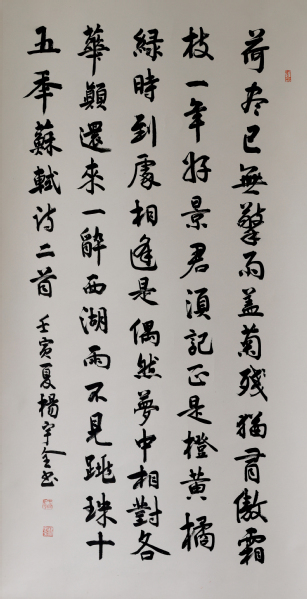 荷尽已無擎雨盖菊殘猶有傲霜
枝一年好景君須記正是橙黄橘
緑時到處相逢是偶然夢中相對各
華顛還來一醉西湖雨不見跳珠十
五年蘇軾诗二首 壬寅夏楊宇全书